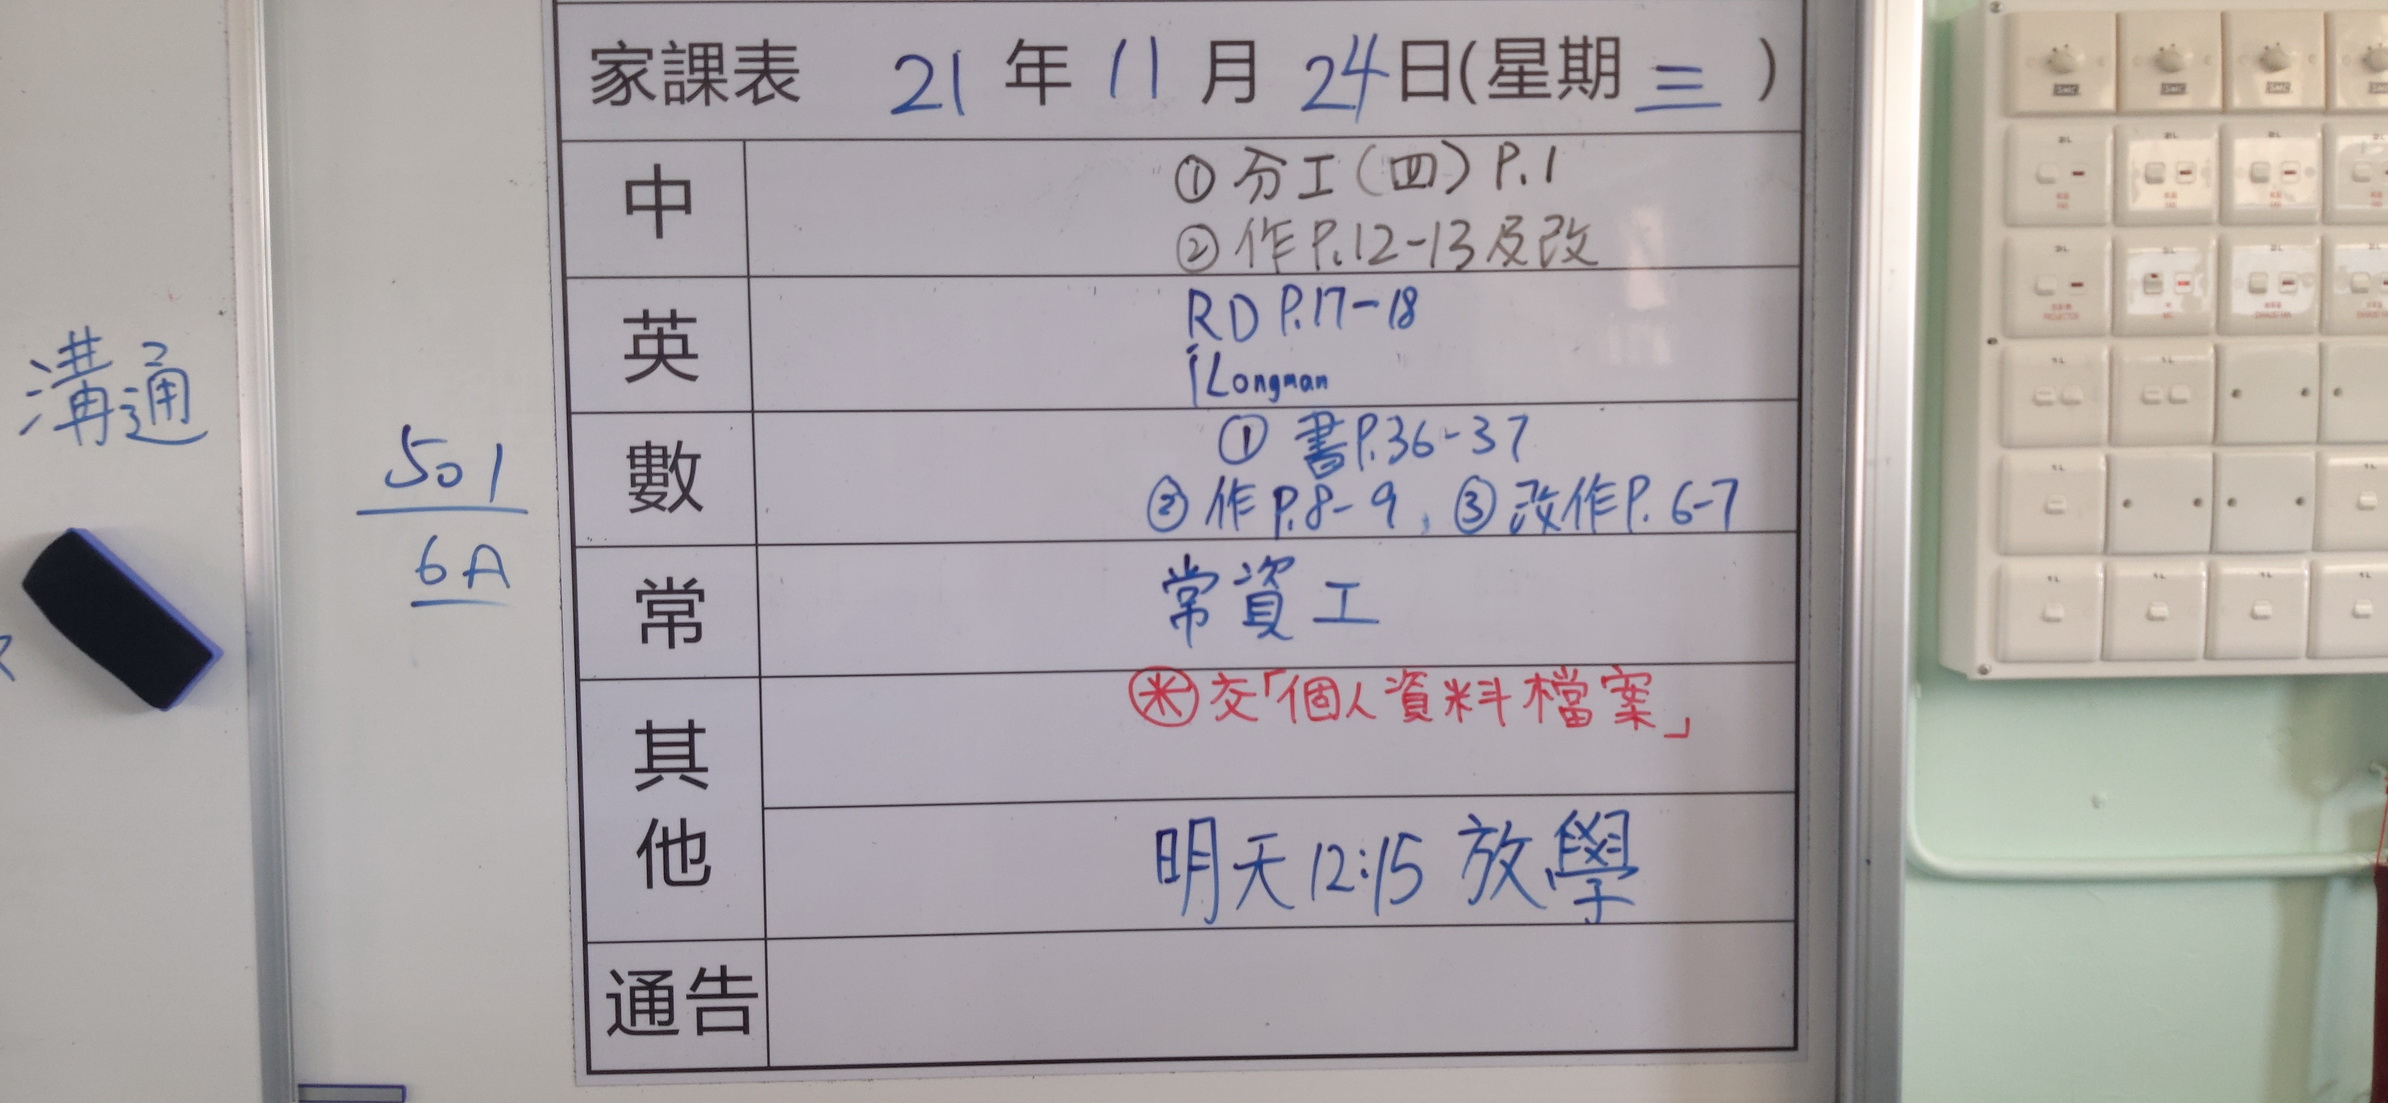 家課表 21 年 11 月 24 日(星期 三 )
中
① 分工(四) P.1
② 作P.12-13及改
英
RD P.17-18
iLongman
數
① 書P.36-37
② 作P.8-9, ③ 改作P. 6-7
常
常資工
其他
㊍ 交「個人資料檔案」
明天12:15 放學
通告
溝通
501
6A